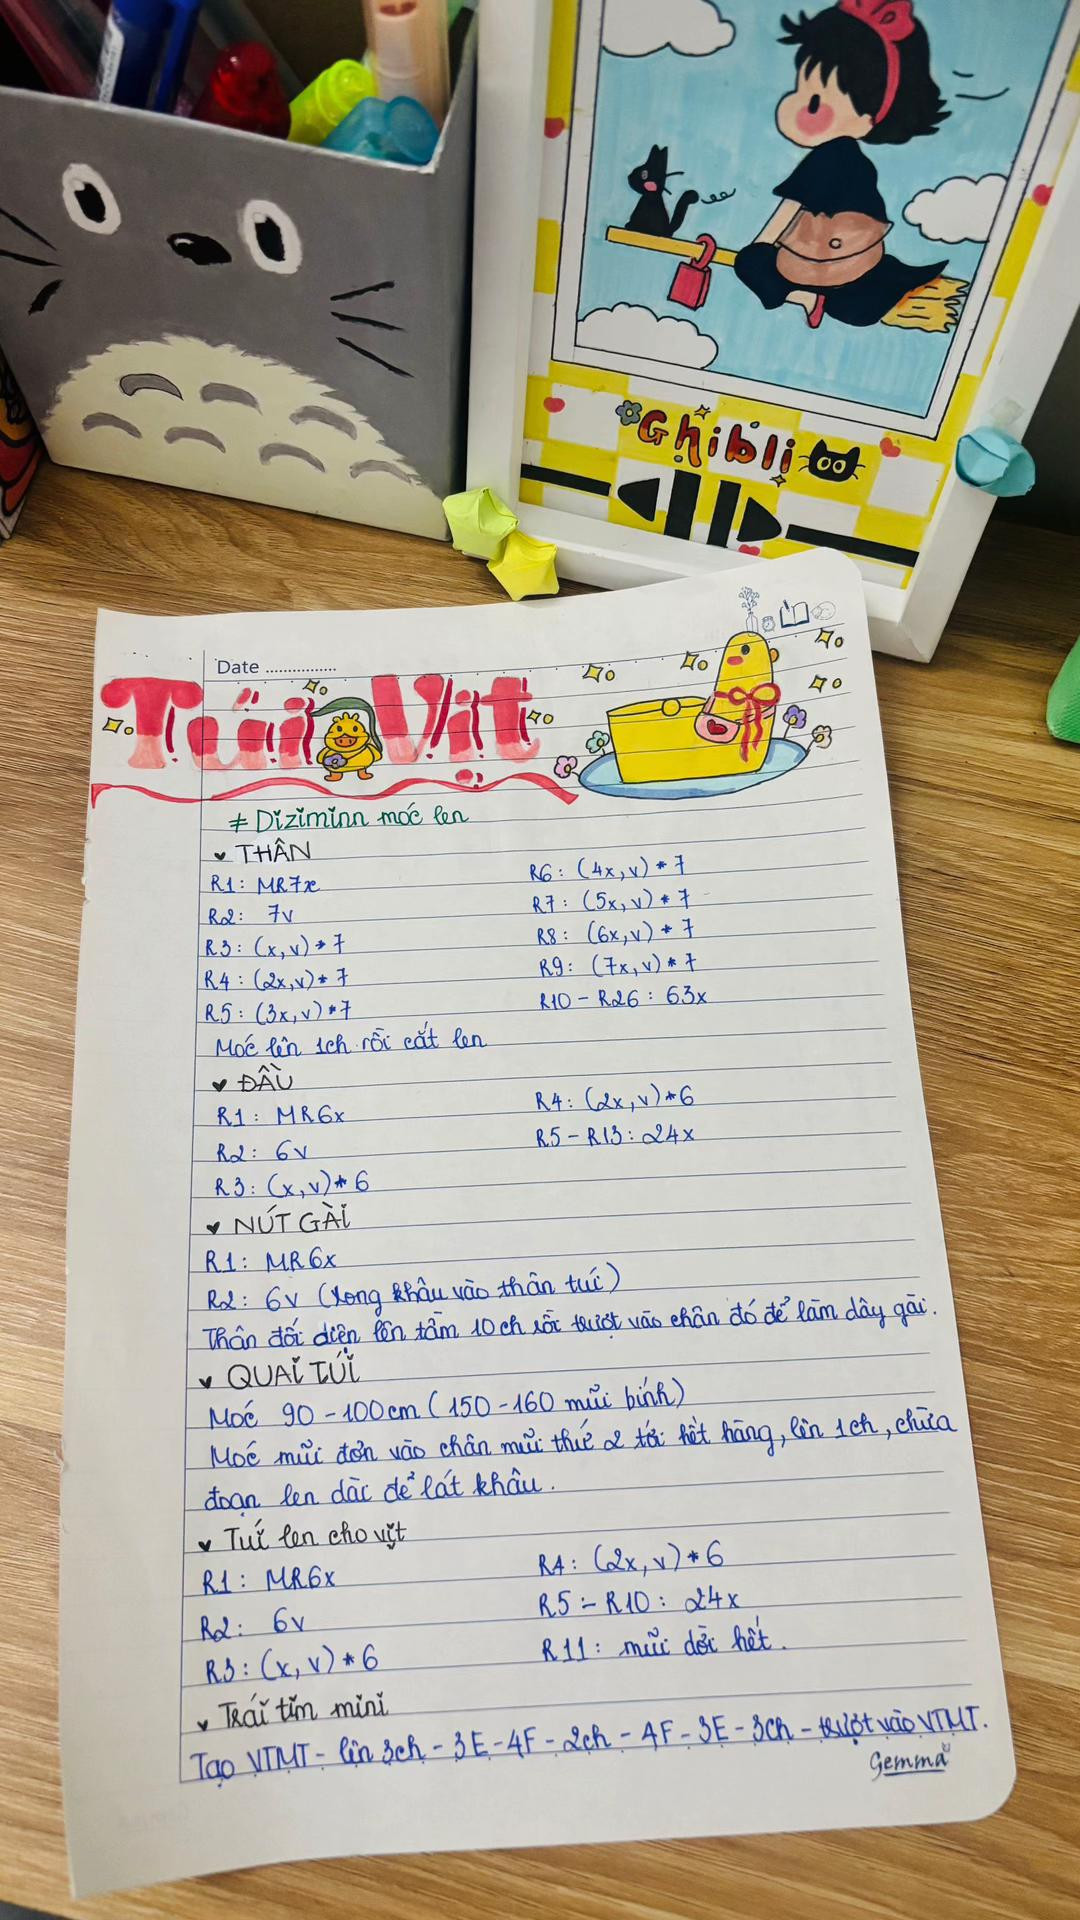 Ghibli
Date ................
Túi Vịt
# Diziminn móc len
♥ THÂN
R1: MR7x
R2: 7v
R3: (x,v)*7
R4: (2x,v)*7
R5: (3x,v)*7
R6: (4x,v)*7
R7: (5x,v)*7
R8: (6x,v)*7
R9: (7x,v)*7
R10 - R26: 63x
Móc lên 1ch rồi cắt len
♥ ĐẦU
R1: MR6x
R2: 6v
R3: (x,v)*6
R4: (2x,v)*6
R5 - R13: 24x
♥ NÚT GÀI
R1: MR6x
R2: 6v (xong khâu vào thân túi)
Thân đối diện lên tầm 10ch rồi trượt vào chân đó để làm dây gài.
♥ QUAI TÚI
Móc 90 - 100cm (150 - 160 mũi bính)
Móc mũi đơn vào chân mũi thứ 2 tới hết hàng, lên 1ch, chừa
đoạn len dài để lát khâu.
♥ Túi len cho vịt
R1: MR6x
R2: 6v
R3: (x,v)*6
R4: (2x,v)*6
R5 - R10: 24x
R11: mũi dời hết.
♥ Trái tim mini
Tạo VTMT - lên 3ch - 3E - 4F - 2ch - 4F - 3E - 3ch - trượt vào VTMT.
Gemma